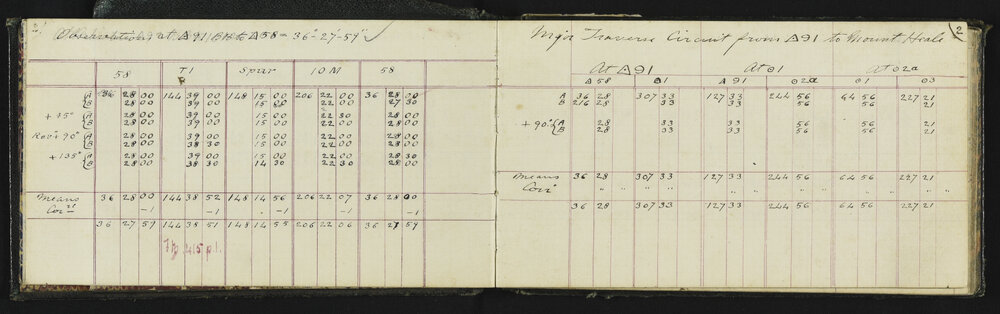 Observations at △91 Brg to △58 = 36°-27'-59" ✓
58 T1 Spur 10M 58
A 36 28 00 144 39 00 148 15 00 206 22 00 36 28 00
B 28 00 39 00 15 00 22 00 27 30
+ 45° A 28 00 39 00 15 00 22 30 28 00
B 28 00 39 00 15 00 22 00 28 00
Rev'd 90° A 28 00 39 00 15 00 22 00 28 00
B 28 00 39 00 15 00 22 00 28 00
+ 135° A 28 00 39 00 15 00 22 00 28 30
B 28 00 38 30 14 30 22 30 28 00
Means 36 28 00 144 38 52 148 14 56 206 22 07 36 28 00
Corrn -1 -1 -1 -1 -1
36 27 59 144 38 51 148 14 55 206 22 06 36 27 59
215 p.1.
2
Major Traverse Circuit from △91 to Mount Heale
At △91 At ⊙1 At ⊙2a
△58 ⊙1 △91 ⊙2a ⊙1 ⊙3
A 36 28 307 33 127 33 244 56 64 56 227 21
B 216 28 33 33 56 56 21
+ 90° A 28 33 33 56 56 21
B 28 33 33 56 56 21
Means 36 28 307 33 127 33 244 56 64 56 227 21
Corrn " " " " " " " " " " "
36 28 307 33 127 33 244 56 64 56 227 21